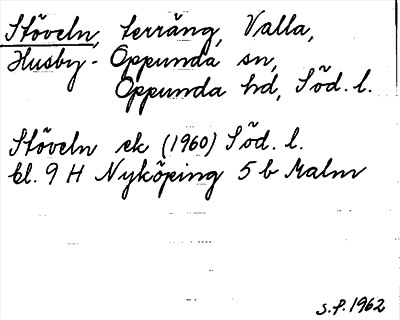 Stöveln, terräng, Valla,
Husby-Oppunda sn,
Oppunda hd, Söd. l.
Stöveln ek (1960) Söd. l.
bl. 9 H Nyköping 5 b Malm
S.P. 1962